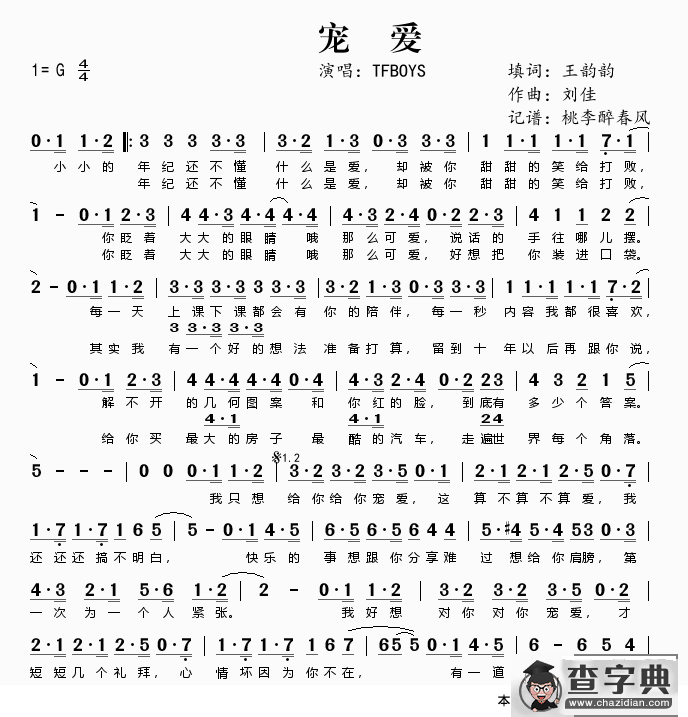 宠 爱
1=G 4/4 演唱：TFBOYS 填词：王韵韵
作曲：刘佳
记谱：桃李醉春风
0·1 1·2 ‖: 3 3 3 3·3 | 3·2 1·3 0·3 2·3 | 1 1·1 1·1 7·1 |
小小的 年纪还不懂 什么是爱，却被你 甜甜的笑给打败，
年纪还不懂 什么是爱，却被你 甜甜的笑给打败，
1 - 0·1 2·3 | 4·4 3·4 4·4 4·4 | 4·3 2·4 0·2 2·3 | 4 1 2 2 |
你眨着 大大的眼睛 哦 那么可爱，说话的 手往哪儿摆。
你眨着 大大的眼睛 哦 那么可爱，好想把 你装进口袋。
2 - 0·1 1·2 | 3·3 3·3 3·3 3·3 | 3·2 1·3 0·3 2·3 | 1·1 1·1 1·1 7·2 |
每一天 上课下课都会有 你的陪伴，每一秒 内容我都很喜欢，
3 3·3 3·3
其实我 有一个好的想法 准备打算，留到十 年以后再跟你说，
1 - 0·1 2·3 | 4·4 4·4 4·4 4·4 | 4·3 2·4 0·2 23 | 4 3 2 1 5 |
解不开 的几何图案 和 你红的脸，到底有 多少个答案。
4·1 4·1 24
给你买 最大的房子 最 酷的汽车，走遍世 界每个角落。
5 - - - | 0 0 0·1 1·2 | 1.2 3·2 3·2 3·5 0·5 | 2·1 2·1 2·5 0·7 |
我只想 给你给你宠爱，这 算不算不算爱，我
1·7 1·7 1 6 5 | 5 - 0·1 4·5 | 6·5 6·5 6·2 4 4 | 5·#4 5·4 53 0·3 |
还还还搞不明白， 快乐的 事想跟你分享难 过想给你肩膀，第
4·3 2·1 5·6 1·2 | 2 - 0·1 1·2 | 3·2 3·2 3·5 0·5 |
一次为一个人紧张。 我好想 对你对你宠爱，才
2·1 2·1 2·5 0·7 | 1·7 1·7 1 6 7 | 6 5 5 0·1 4·5 | 6 - 6 5 4
短短几个礼拜，心 情坏因为你不在， 有一道
本
查字典
www.chazidian.com